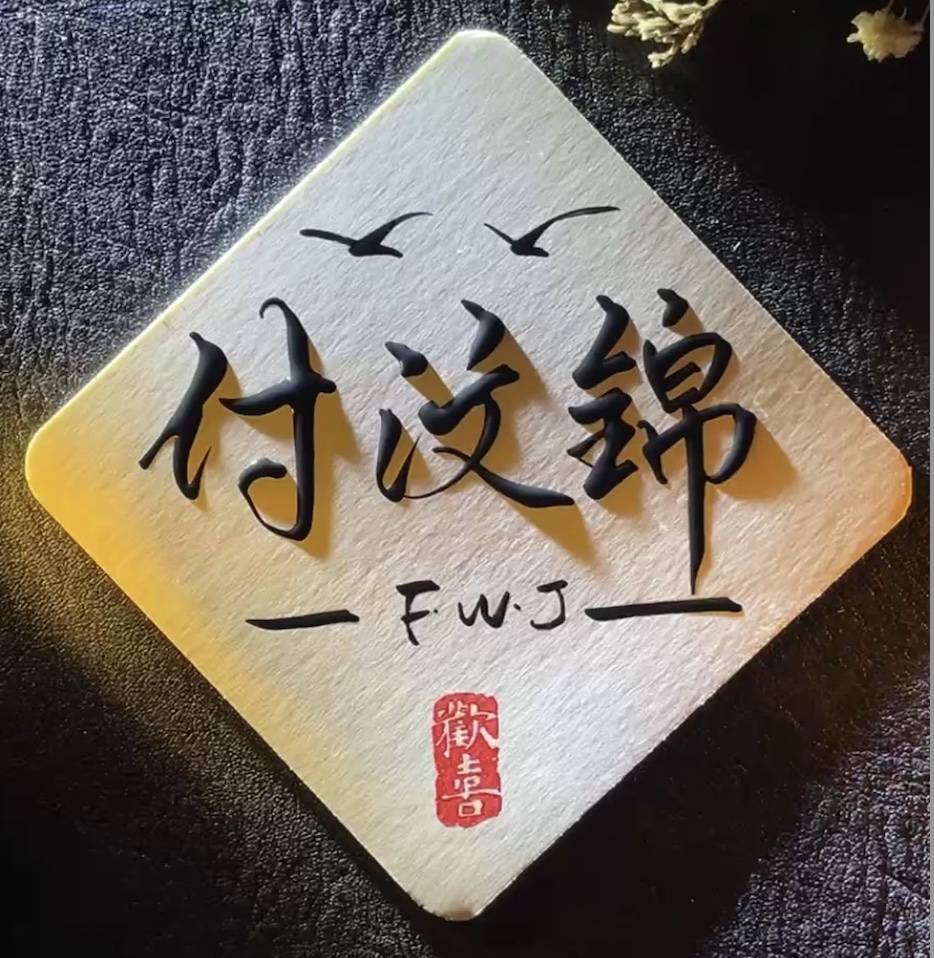 付汶锦
F.W.J
歡喜